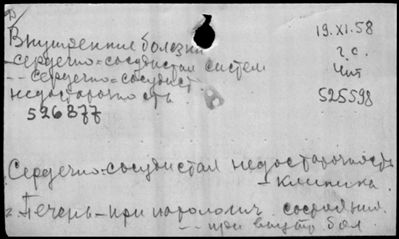 Внутренние болезни
- сердечно-сосудистая систем
- - сердечно-сосудист.
недостаточность
526877
19.XI.58
г.с.
Чит
525598
Сердечно-сосудистая недостаточность
- клиника.
2. Печень - при патологич состояния.
- - при внутр бол.